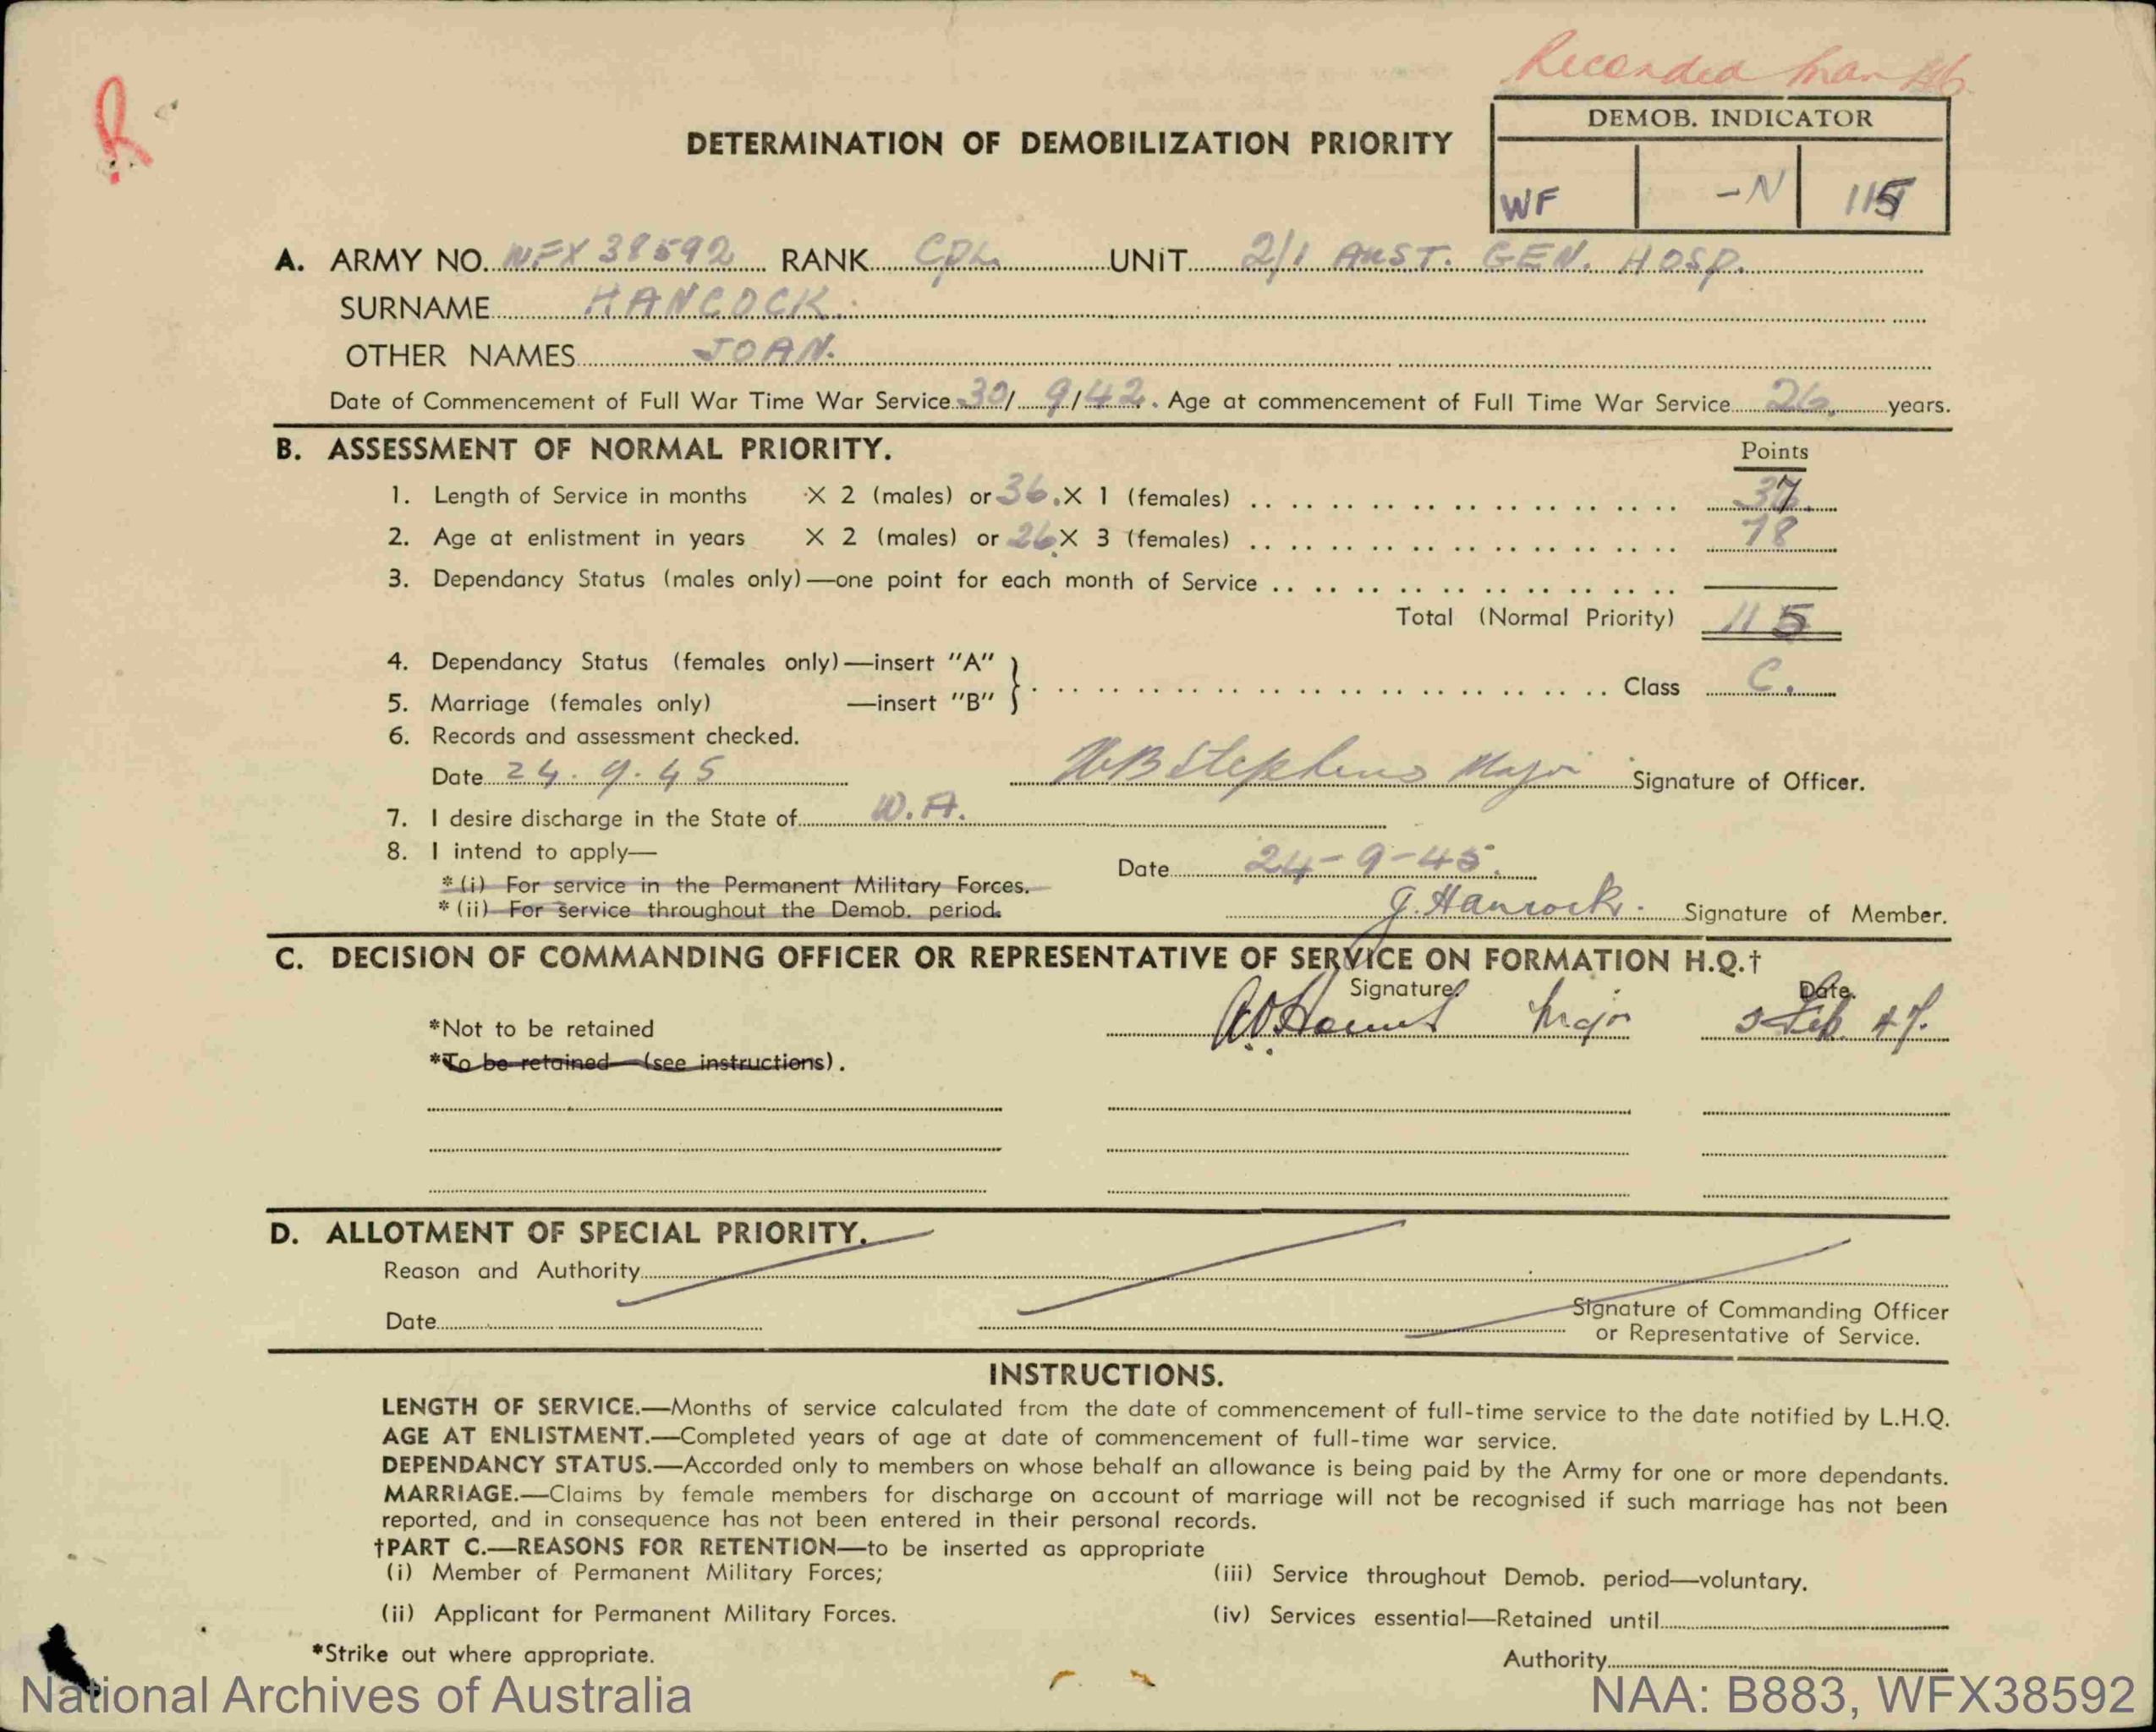 Recorded Mar 46
DEMOB. INDICATOR
WF -N 115
DETERMINATION OF DEMOBILIZATION PRIORITY
A. ARMY NO. WFX 38592 RANK CPL UNIT 2/1 AUST. GEN. HOSP.
SURNAME HANCOCK.
OTHER NAMES JOAN.
Date of Commencement of Full War Time War Service 30/ 9/42. Age at commencement of Full Time War Service 26 years.
B. ASSESSMENT OF NORMAL PRIORITY.
Points
1. Length of Service in months X 2 (males) or 36 X 1 (females) 37
2. Age at enlistment in years X 2 (males) or 26 X 3 (females) 78
3. Dependancy Status (males only)—one point for each month of Service
Total (Normal Priority) 115
4. Dependancy Status (females only)—insert "A"
5. Marriage (females only) —insert "B"
Class C.
6. Records and assessment checked.
Date 24.9.45 Stephens Major Signature of Officer.
7. I desire discharge in the State of W.A.
8. I intend to apply—
Date 24-9-45.
*(i) For service in the Permanent Military Forces.
*(ii) For service throughout the Demob. period.
J. Hancock. Signature of Member.
C. DECISION OF COMMANDING OFFICER OR REPRESENTATIVE OF SERVICE ON FORMATION H.Q.†
Signature. Date.
*Not to be retained Major Feb. 47.
*To be retained—(see instructions).
D. ALLOTMENT OF SPECIAL PRIORITY.
Reason and Authority
Date
Signature of Commanding Officer
or Representative of Service.
INSTRUCTIONS.
LENGTH OF SERVICE.—Months of service calculated from the date of commencement of full-time service to the date notified by L.H.Q.
AGE AT ENLISTMENT.—Completed years of age at date of commencement of full-time war service.
DEPENDANCY STATUS.—Accorded only to members on whose behalf an allowance is being paid by the Army for one or more dependants.
MARRIAGE.—Claims by female members for discharge on account of marriage will not be recognised if such marriage has not been
reported, and in consequence has not been entered in their personal records.
†PART C.—REASONS FOR RETENTION—to be inserted as appropriate
(i) Member of Permanent Military Forces;
(iii) Service throughout Demob. period—voluntary.
(ii) Applicant for Permanent Military Forces.
(iv) Services essential—Retained until
*Strike out where appropriate.
Authority
National Archives of Australia
NAA: B883, WFX38592